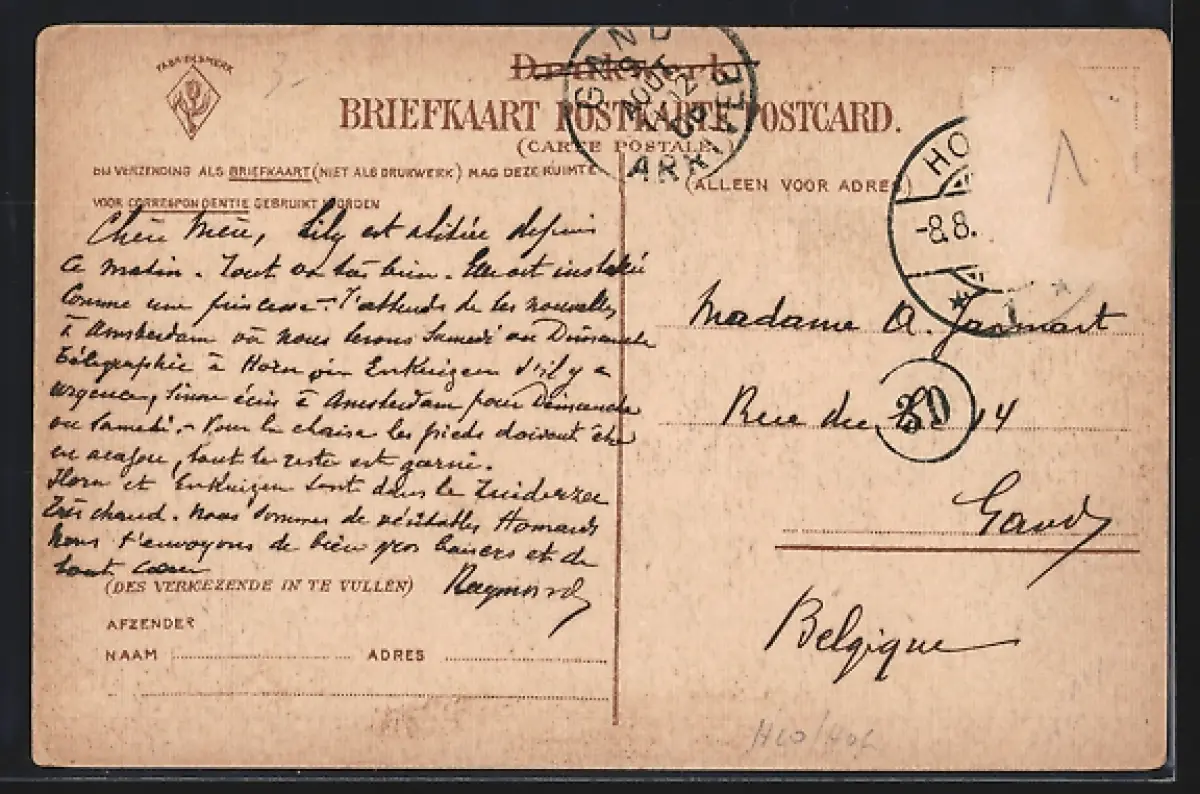 FABRIEKSMERK
Drukwerk
BRIEFKAART POSTKARTE POSTCARD.
(CARTE POSTALE.)
GAND
9
AOUT
12
ARRIVEE
BIJ VERZENDING ALS BRIEFKAART (NIET ALS DRUKWERK) MAG DEZE RUIMTE
VOOR CORRESPONDENTIE GEBRUIKT WORDEN
(ALLEEN VOOR ADRES)
HO
-8.8.
Chère Mère, Lily est alitée depuis
ce matin. Tout va très bien. Elle est installée
comme une princesse - J'attends de tes nouvelles
à Amsterdam où nous serons Samedi ou Dimanche
Télégraphie à Horn ou Enkuizen s'il y a
urgence, sinon écris à Amsterdam pour Dimanche
ou Samedi. - Pour la chaise les pieds doivent être
en acajou, tout le reste est garni.
Horn et Enkuizen sont dans le Zuiderzee
Très chaud. Nous sommes de véritables Homards
Nous t'envoyons de bien gros baisers et de
tout cœur
Raymond
(DES VERKIEZENDE IN TE VULLEN)
AFZENDER
NAAM ADRES
Madame A. Jasmart
Rue du 14
30
Gand
Belgique